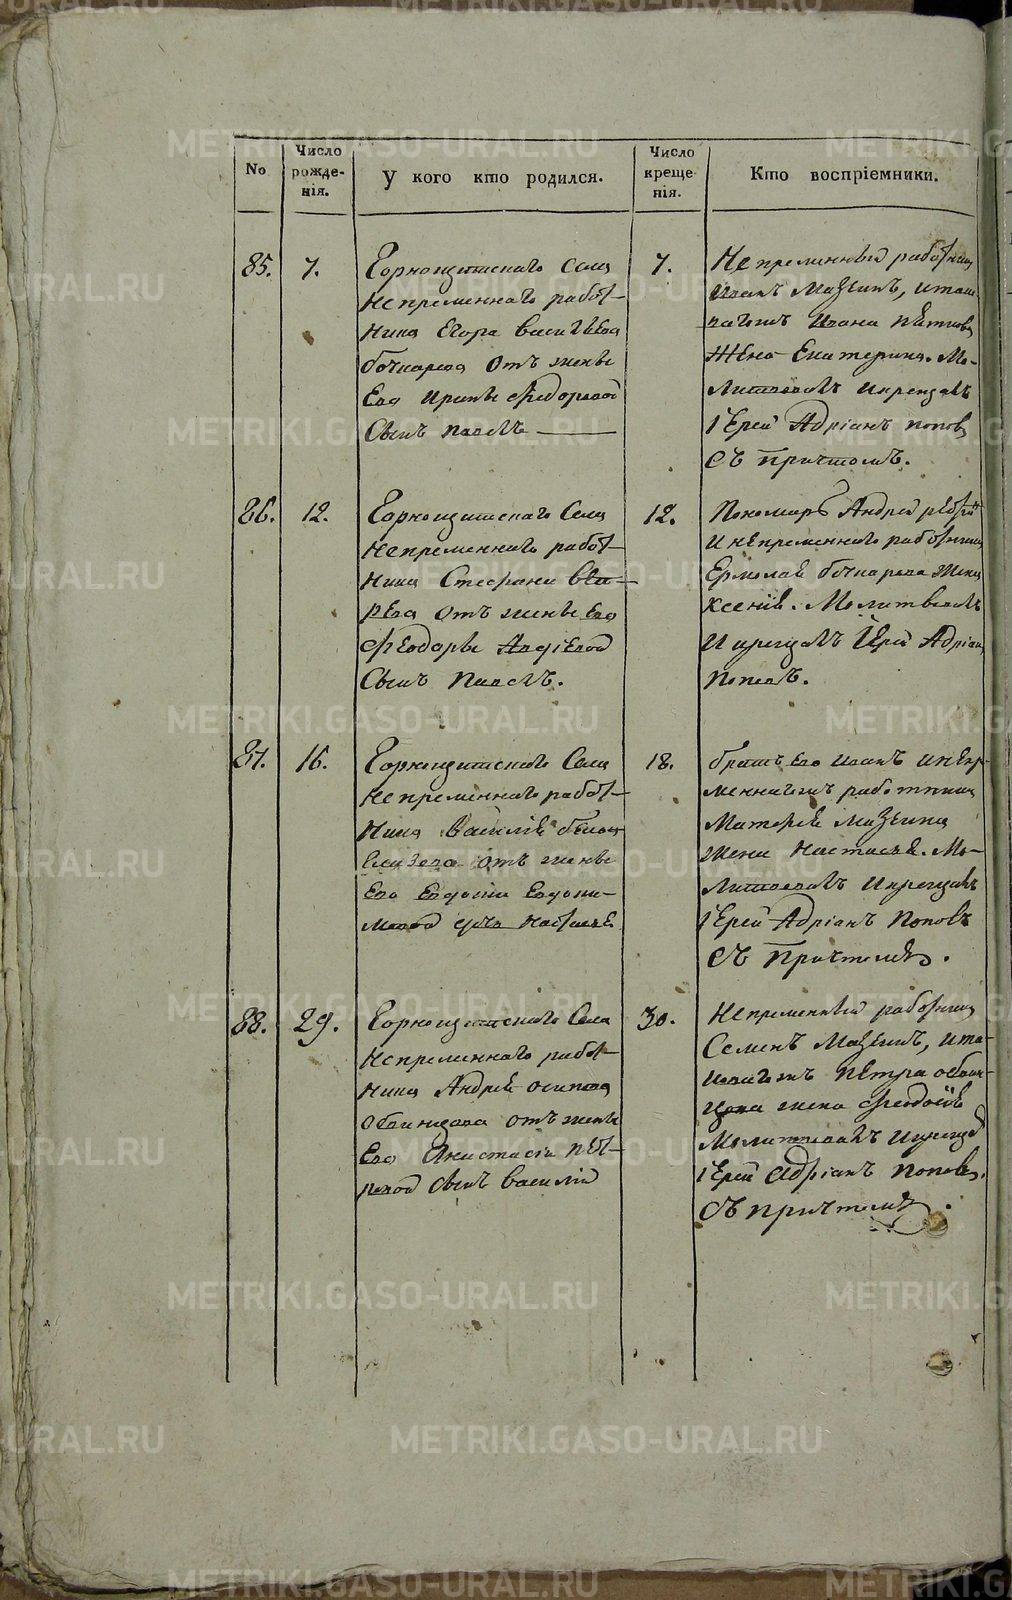 No
Число рожде-нія.
У кого кто родился.
Число креще нія.
Кто воспріемники.
85.
7.
Горнощитскаго Села
Непременнаго работ-
ника Егора Васильева
бочкарева отъ жены
Ево Ирины Федоровой
Сынъ Павелъ
7.
Непременный работник
Иванъ Мазеинъ, и таков
вагожъ Ивана
Жена Екатерина. Мо-
литвовалъ и крещалъ
Іерей Адріанъ Попов
съ Причтомъ.
86.
12.
Горнощитскаго Села
Непременнаго работ-
ника Стефана
отъ жены Ево
Феодоры
Сынъ Павелъ.
12.
Пономарь Андрей
и непременнаго работника
Ермолая бочкарева жена
Ксенія. Молитвовалъ
и крещалъ Іерей Адріан
Попов.
87.
16.
Горнощитскаго Села
Непременнаго работ-
ника Василія
отъ жены
Ево Евдокии Евдоки-
мовой дочь Настасья
18.
братъ Ево Иванъ и непре-
меннагожъ работника
Матфея Мазеина
жена Настасья. Мо-
литвовалъ и крещалъ
Іерей Адріанъ Поповъ
съ Причтомъ.
88.
29.
Горнощитскаго Села
Непременнаго работ-
ника Андрея Осипова
отъ жены
Ево Анастасіи Пет-
ровой сынъ Василій
30.
Непременный работник
Семенъ Мазеинъ, и та-
ковагожъ Петра
жена
Молитвовалъ и крещал
Іерей Адріанъ Попов.
съ причтомъ.
METRIKI.GASO-URAL.RU